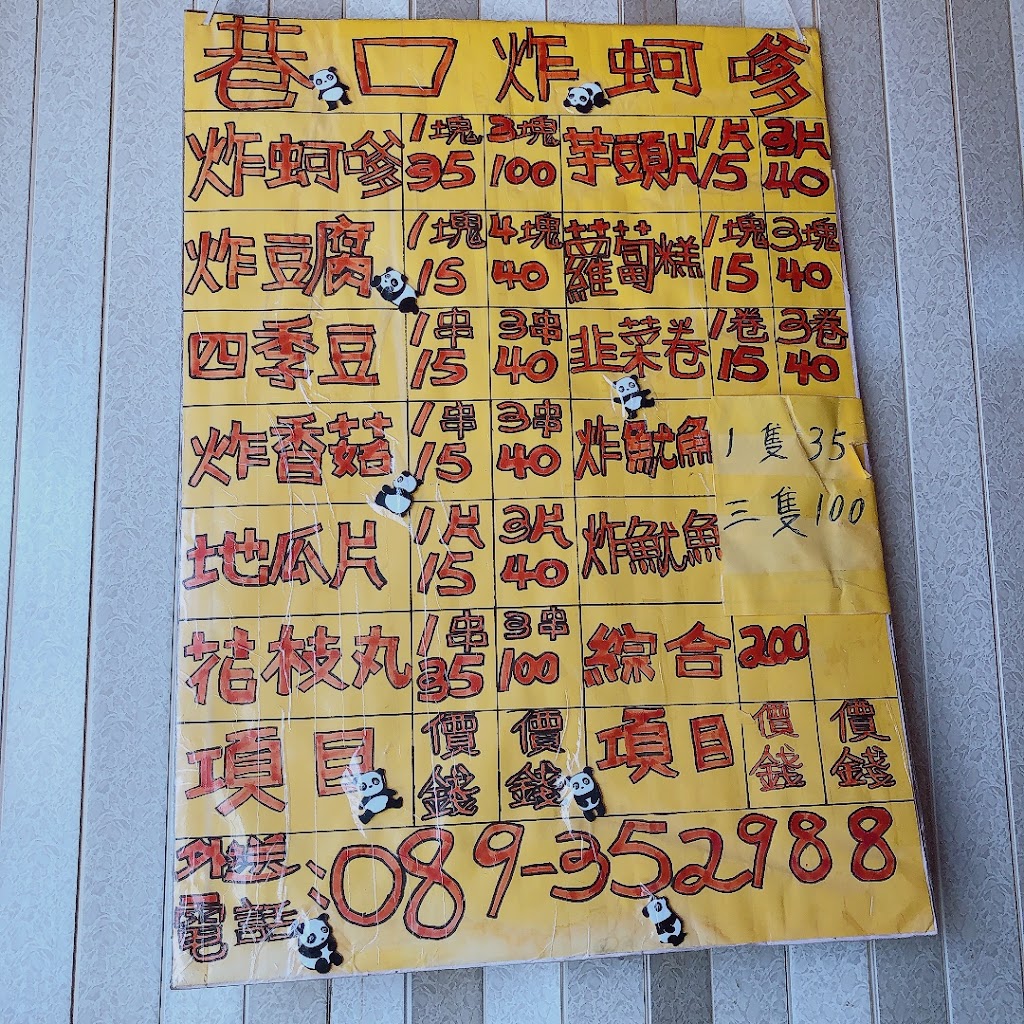 巷口炸蚵嗲
炸蚵嗲 1塊35 3塊100 芋頭片 1片15 3片40
炸豆腐 1塊15 4塊40 蘿蔔糕 1塊15 3塊40
四季豆 1串15 3串40 韭菜卷 1卷15 3卷40
炸香菇 1串15 3串40 炸魷魚 1隻35
地瓜片 1片15 3片40 炸魷魚 三隻100
花枝丸 1串35 3串100 綜合 200
項目 價錢 價錢 項目 價錢 價錢
外送電話:089-352988